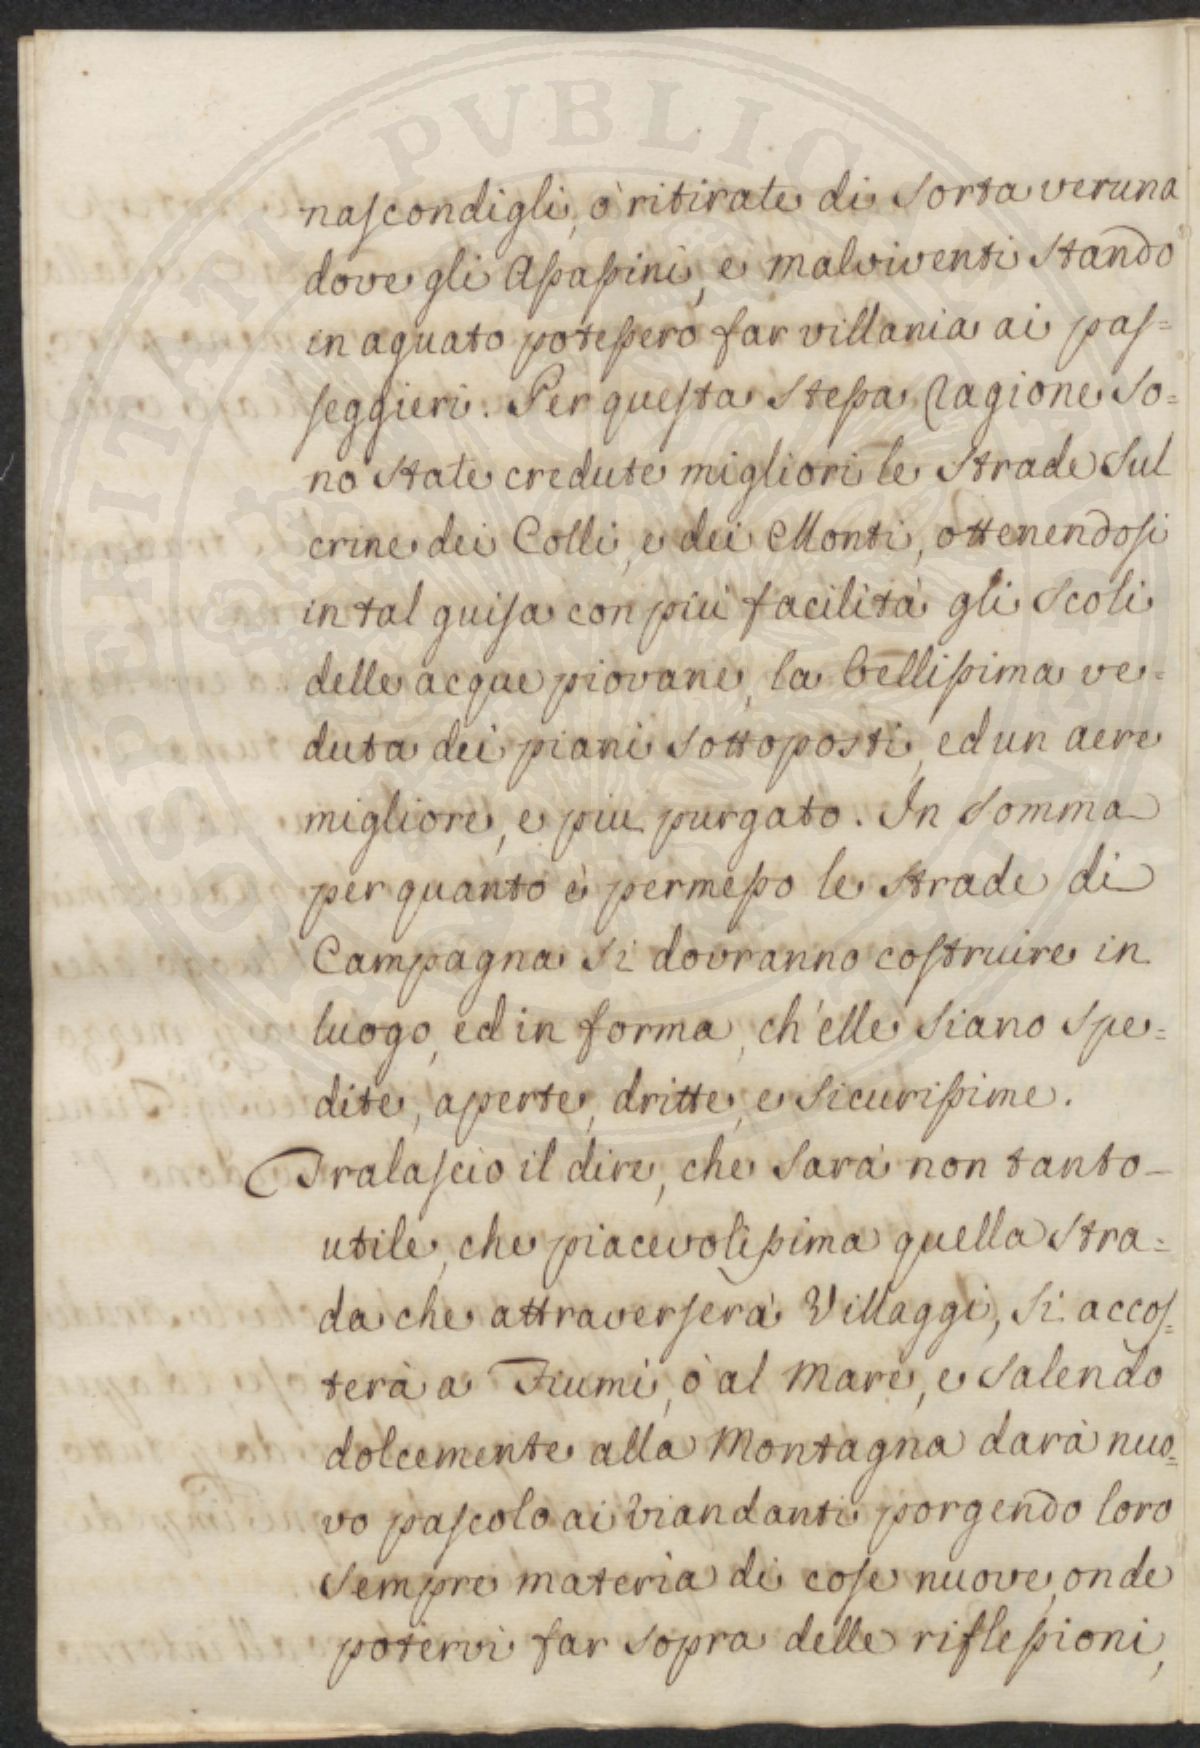 nascondigli, ò ritirate di sorta veruna
dove gli Assassini, e malviventi stando
in aguato potessero far villania ai pas=
seggieri. Per questa stessa Ragione so=
no state credute migliori le strade sul
crine dei Colli, e dei Monti, ottenendosi
in tal guisa con più facilità gli scoli
delle acque piovane, la bellissima ve=
duta dei piani sottoposti, ed un aere
migliore, e più purgato. In somma
per quanto è permesso le strade di
Campagna si dovranno costruire in
luogo, ed in forma, ch'elle siano spe=
dite, aperte, dritte, e sicurissime.
Tralascio il dire, che sarà non tanto
utile, che piacevolissima quella stra=
da che attraverserà Villaggi, si accos=
terà a Fiumi, ò al Mare, e salendo
dolcemente alla Montagna darà nuo=
vo pascolo ai Viandanti porgendo loro
sempre materia di cose nuove, onde
potervi far sopra delle riflessioni,